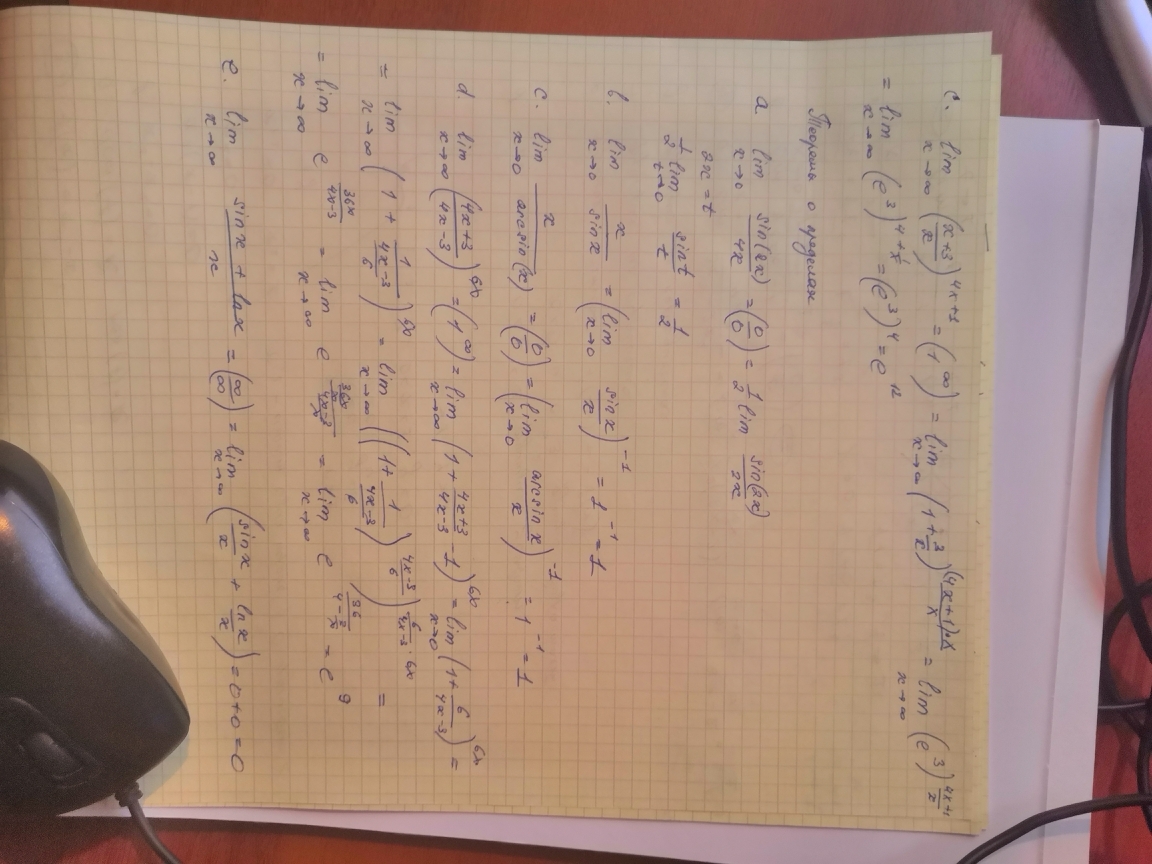 c. lim x→∞ ((x+3)/x)^(4x+1) = (1^∞) = lim x→∞ (1+3/x)^((4x+1)·x/x) = lim x→∞ (e^3)^((4x+1)/x)
= lim x→∞ (e^3)^(4+1/x) = (e^3)^4 = e^12
Теоремы о пределах
a lim x→0 sin(2x)/4x = (0/0) = 1/2 lim sin(2x)/2x
2x = t
1/2 lim t→0 sin t/t = 1/2
b. lim x→0 x/sin x = (lim x→0 sin x/x)^-1 = 1^-1 = 1
c. lim x→0 x/arcsin(x) = (0/0) = (lim x→0 arcsin x/x)^-1 = 1^-1 = 1
d. lim x→∞ ((4x+3)/(4x-3))^6x = (1^∞) = lim x→∞ (1 + (4x+3)/(4x-3) - 1)^6x = lim x→0 (1 + 6/(4x-3))^6x =
= lim x→∞ (1 + 1/((4x-3)/6))^6x = lim x→∞ ((1 + 1/((4x-3)/6))^((4x-3)/6))^(6/(4x-3) · 6x) =
= lim x→∞ e^(36x/(4x-3)) = lim x→∞ e^((36x/x)/((4x-3)/x)) = lim x→∞ e^(36/(4-3/x)) = e^9
e. lim x→∞ (sin x + ln x)/x = (∞/∞) = lim x→∞ (sin x/x + ln x/x) = 0+0 = 0